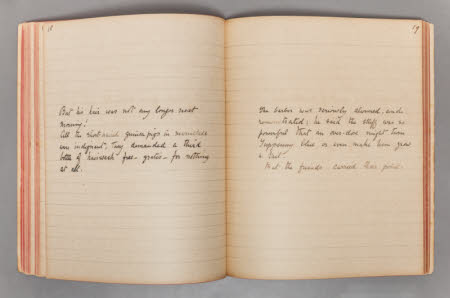 18
But his hair was not any longer next
morning!
All the short haired guinea pigs in
were indignant. They demanded a third
bottle of hairwash free - gratis - for nothing
at all.
19
The barber was seriously alarmed, and
remonstrated; he said the stuff was so
powerful that an over-dose might turn
Tuppenny blue or even make him grow
a tail.
But the friends carried their point.